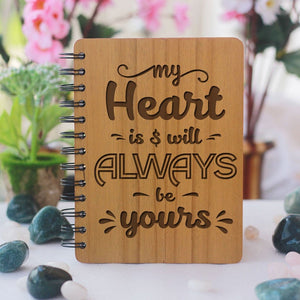 my
Heart
is & will
ALWAYS
be
yours